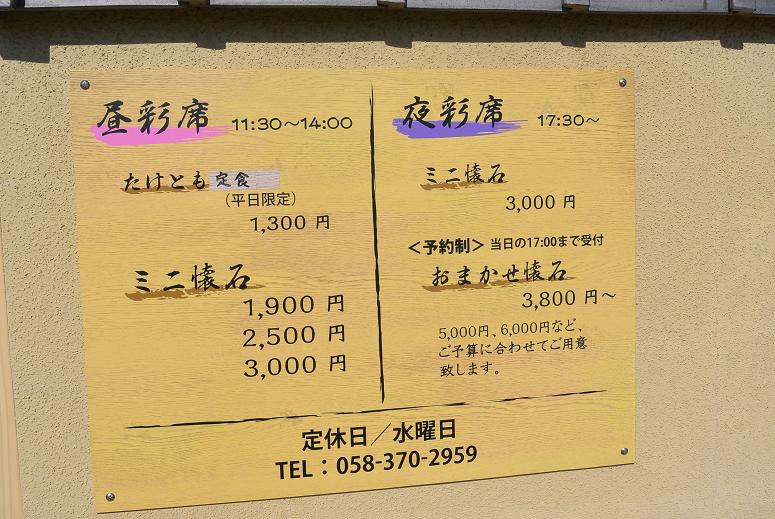 昼彩席 11:30～14:00
たけとも定食
（平日限定）
1,300 円
ミニ懐石
1,900 円
2,500 円
3,000 円
夜彩席 17:30～
ミニ懐石
3,000 円
＜予約制＞ 当日の17:00まで受付
おまかせ懐石
3,800 円～
5,000円、6,000円など、
ご予算に合わせてご用意
致します。
定休日／水曜日
TEL：058-370-2959